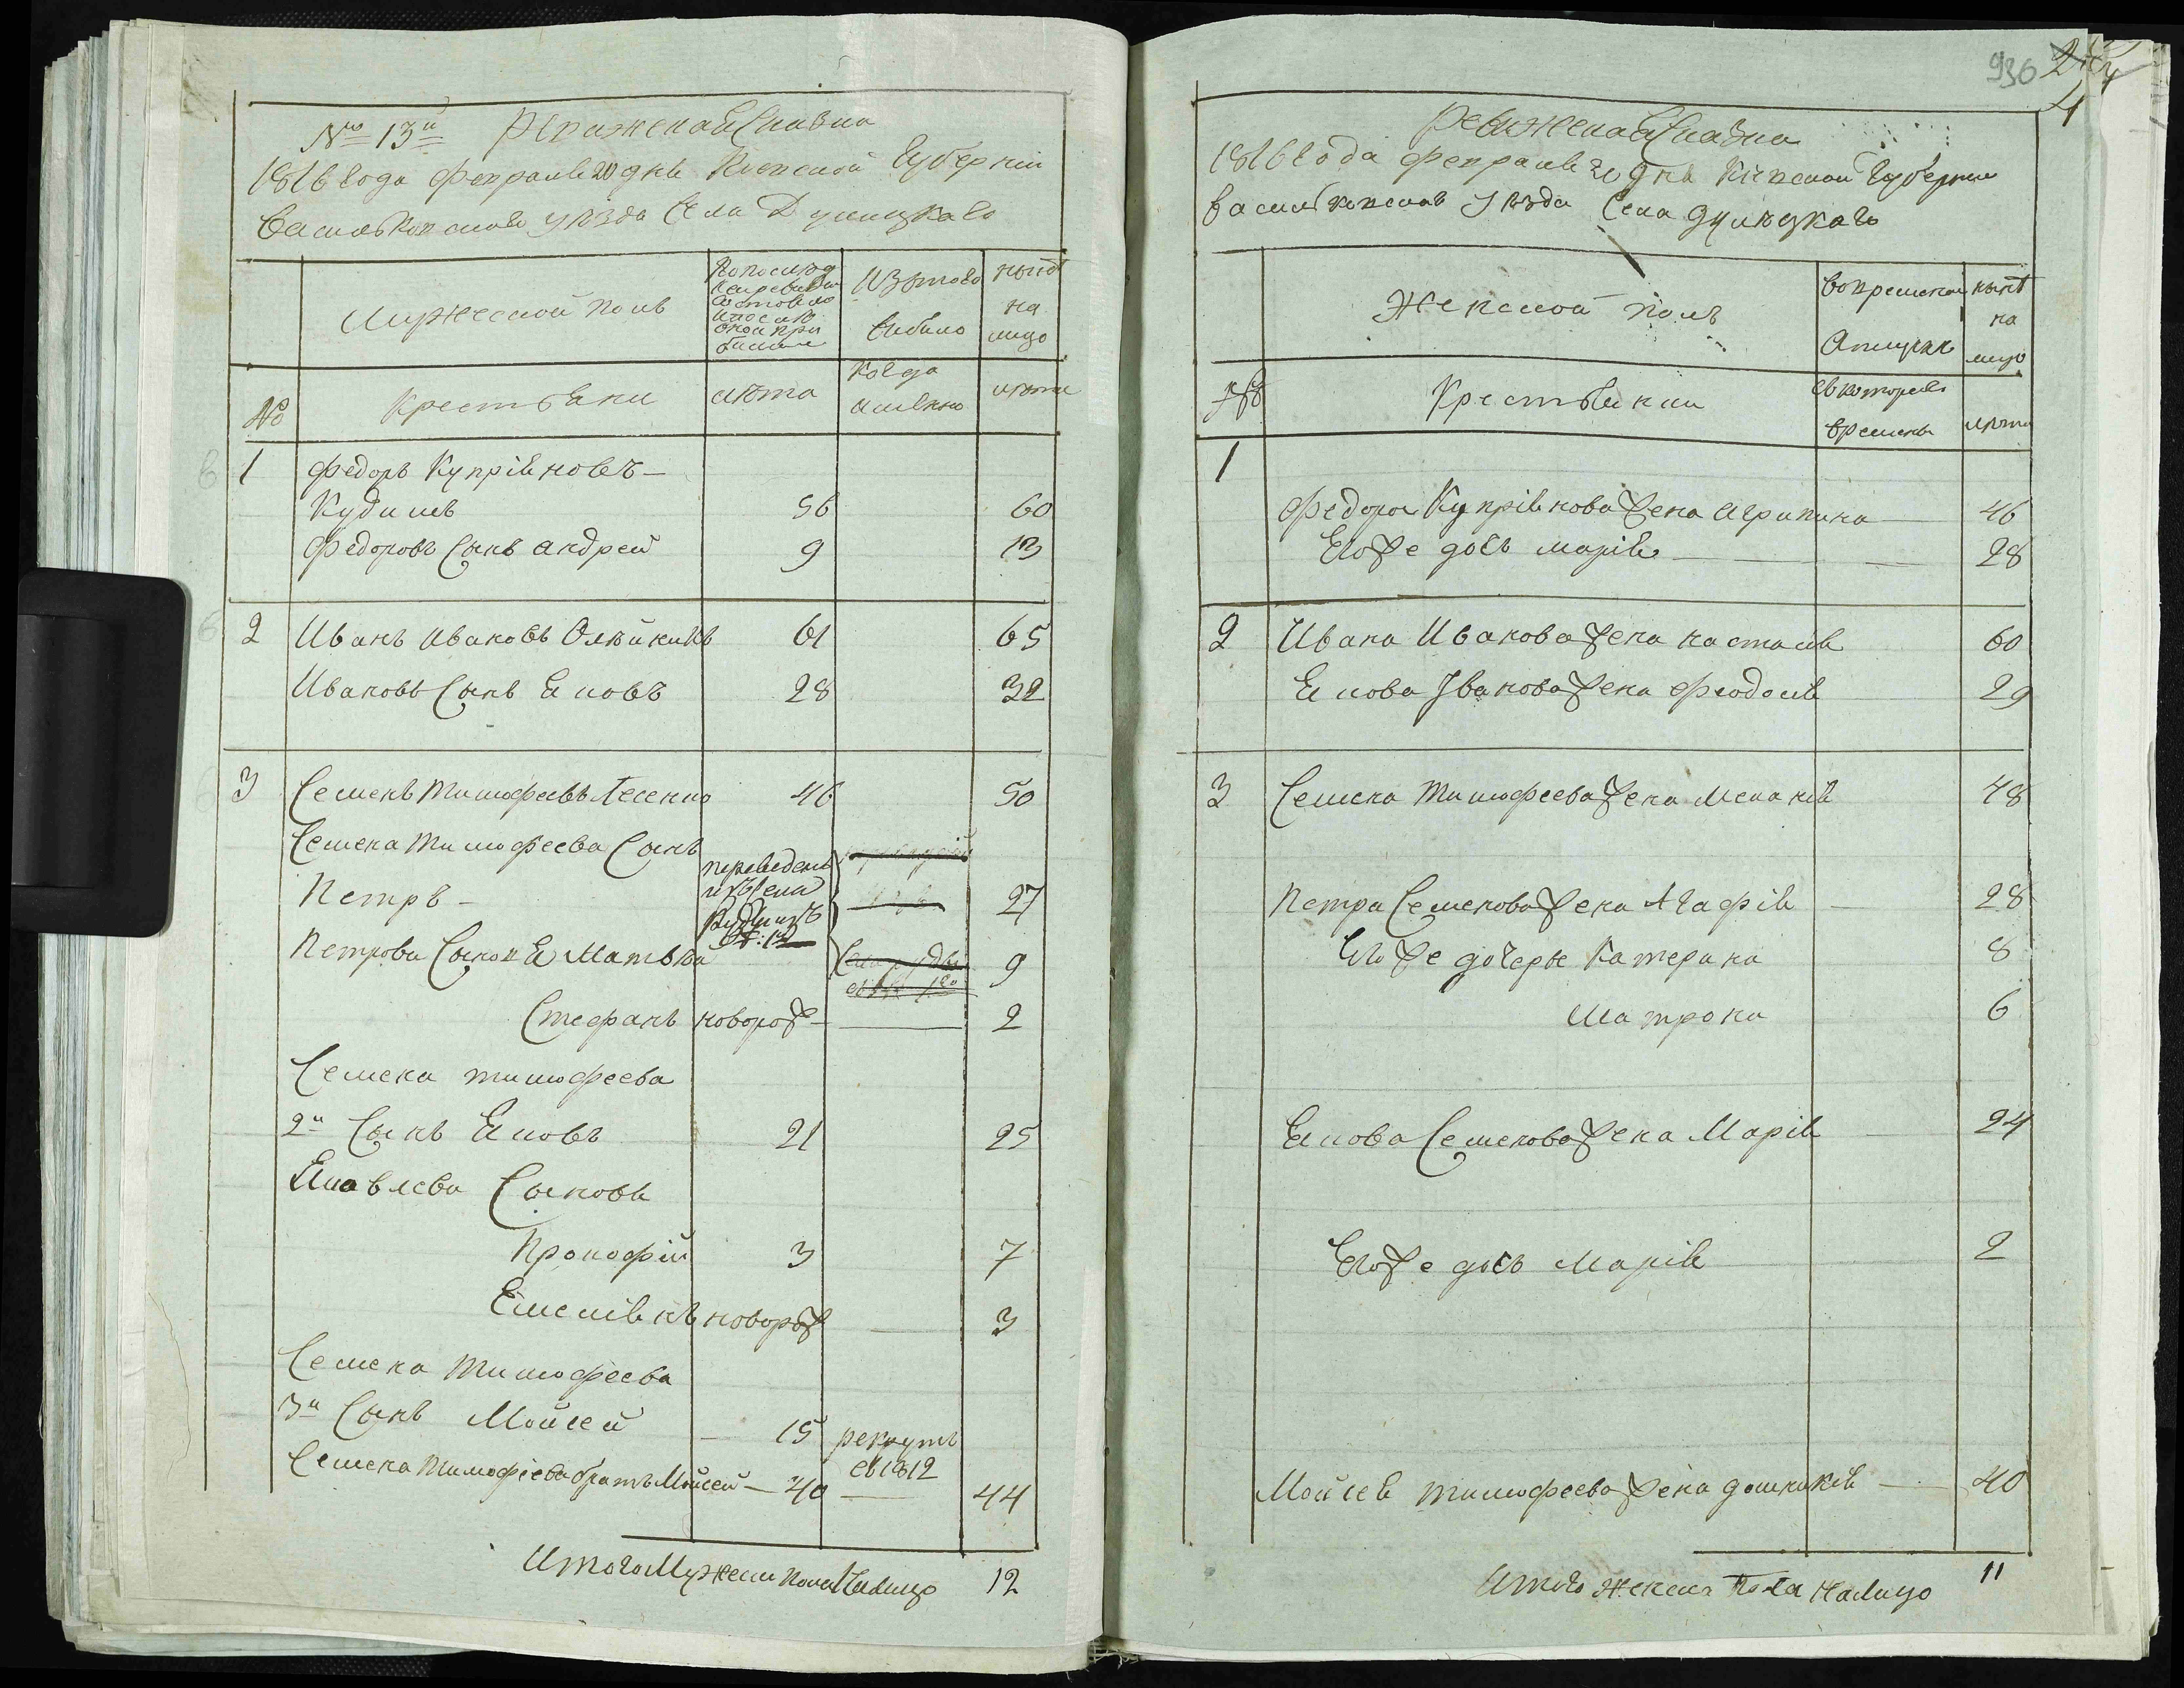 № 13й Ревижская Сказка
1816 года февраля 20 дня Киевской Губернии
Васильковского уезда Села Дулицкаго
Мужеской полъ
По последней ревизии состояло и после оной прибыло
Изъ того выбыло
ныне на лицо
№ Крестьяни
лета
Когда именно
лета
1 Федоръ Купріяновъ
Кудимъ 56 60
Федоровъ Сынъ Андрей 9 13
2 Иванъ Ивановъ Олейникъ 61 65
Ивановъ Сынъ Яковъ 28 32
3 Семенъ Тимофеевъ Лесенко 46 50
Семена Тимофеева Сынъ
Петръ - переведенъ изъ Села 27
Петрови Синовя Матвей 9
Стефанъ новорож 2
Семена Тимофеева
2й Сынъ Яковъ 21 25
Яковлеви Сыновя
Прокофій 3 7
Емеліянъ новорож 3
Семена Тимофеева
3й Сынъ Мойсей 15 рекрутъ
в 1812
Семена Тимофеева братъ Мойсей 40 44
Итого Мужеска пола Налицо 12
936
4
Ревижская Сказка
1816 Года февраля 20 дня Кіевской Губернии
Васильковскаго Уезда Села Дулѣцкаго
Женской полъ
Во временной отлучке
ныне на лицо
№ Крестьянки
Съ котораго времени
лета
1
Федора Купріянова жена Агрипина 46
Его же дочъ Марія 28
2 Ивана Иванова жена Настасія 60
Якова Іванова жена Феодосія 29
3 Семена Тимофеева жена Меланія 48
Петра Семенова жена Агафія 28
Его же дочеры Катерина 8
Матрона 6
Якова Семенова жена Марія 24
Его же дочъ Марія 2
Мойсея Тимофеева жена Домникія 40
Итого женска Пола Налицо 11